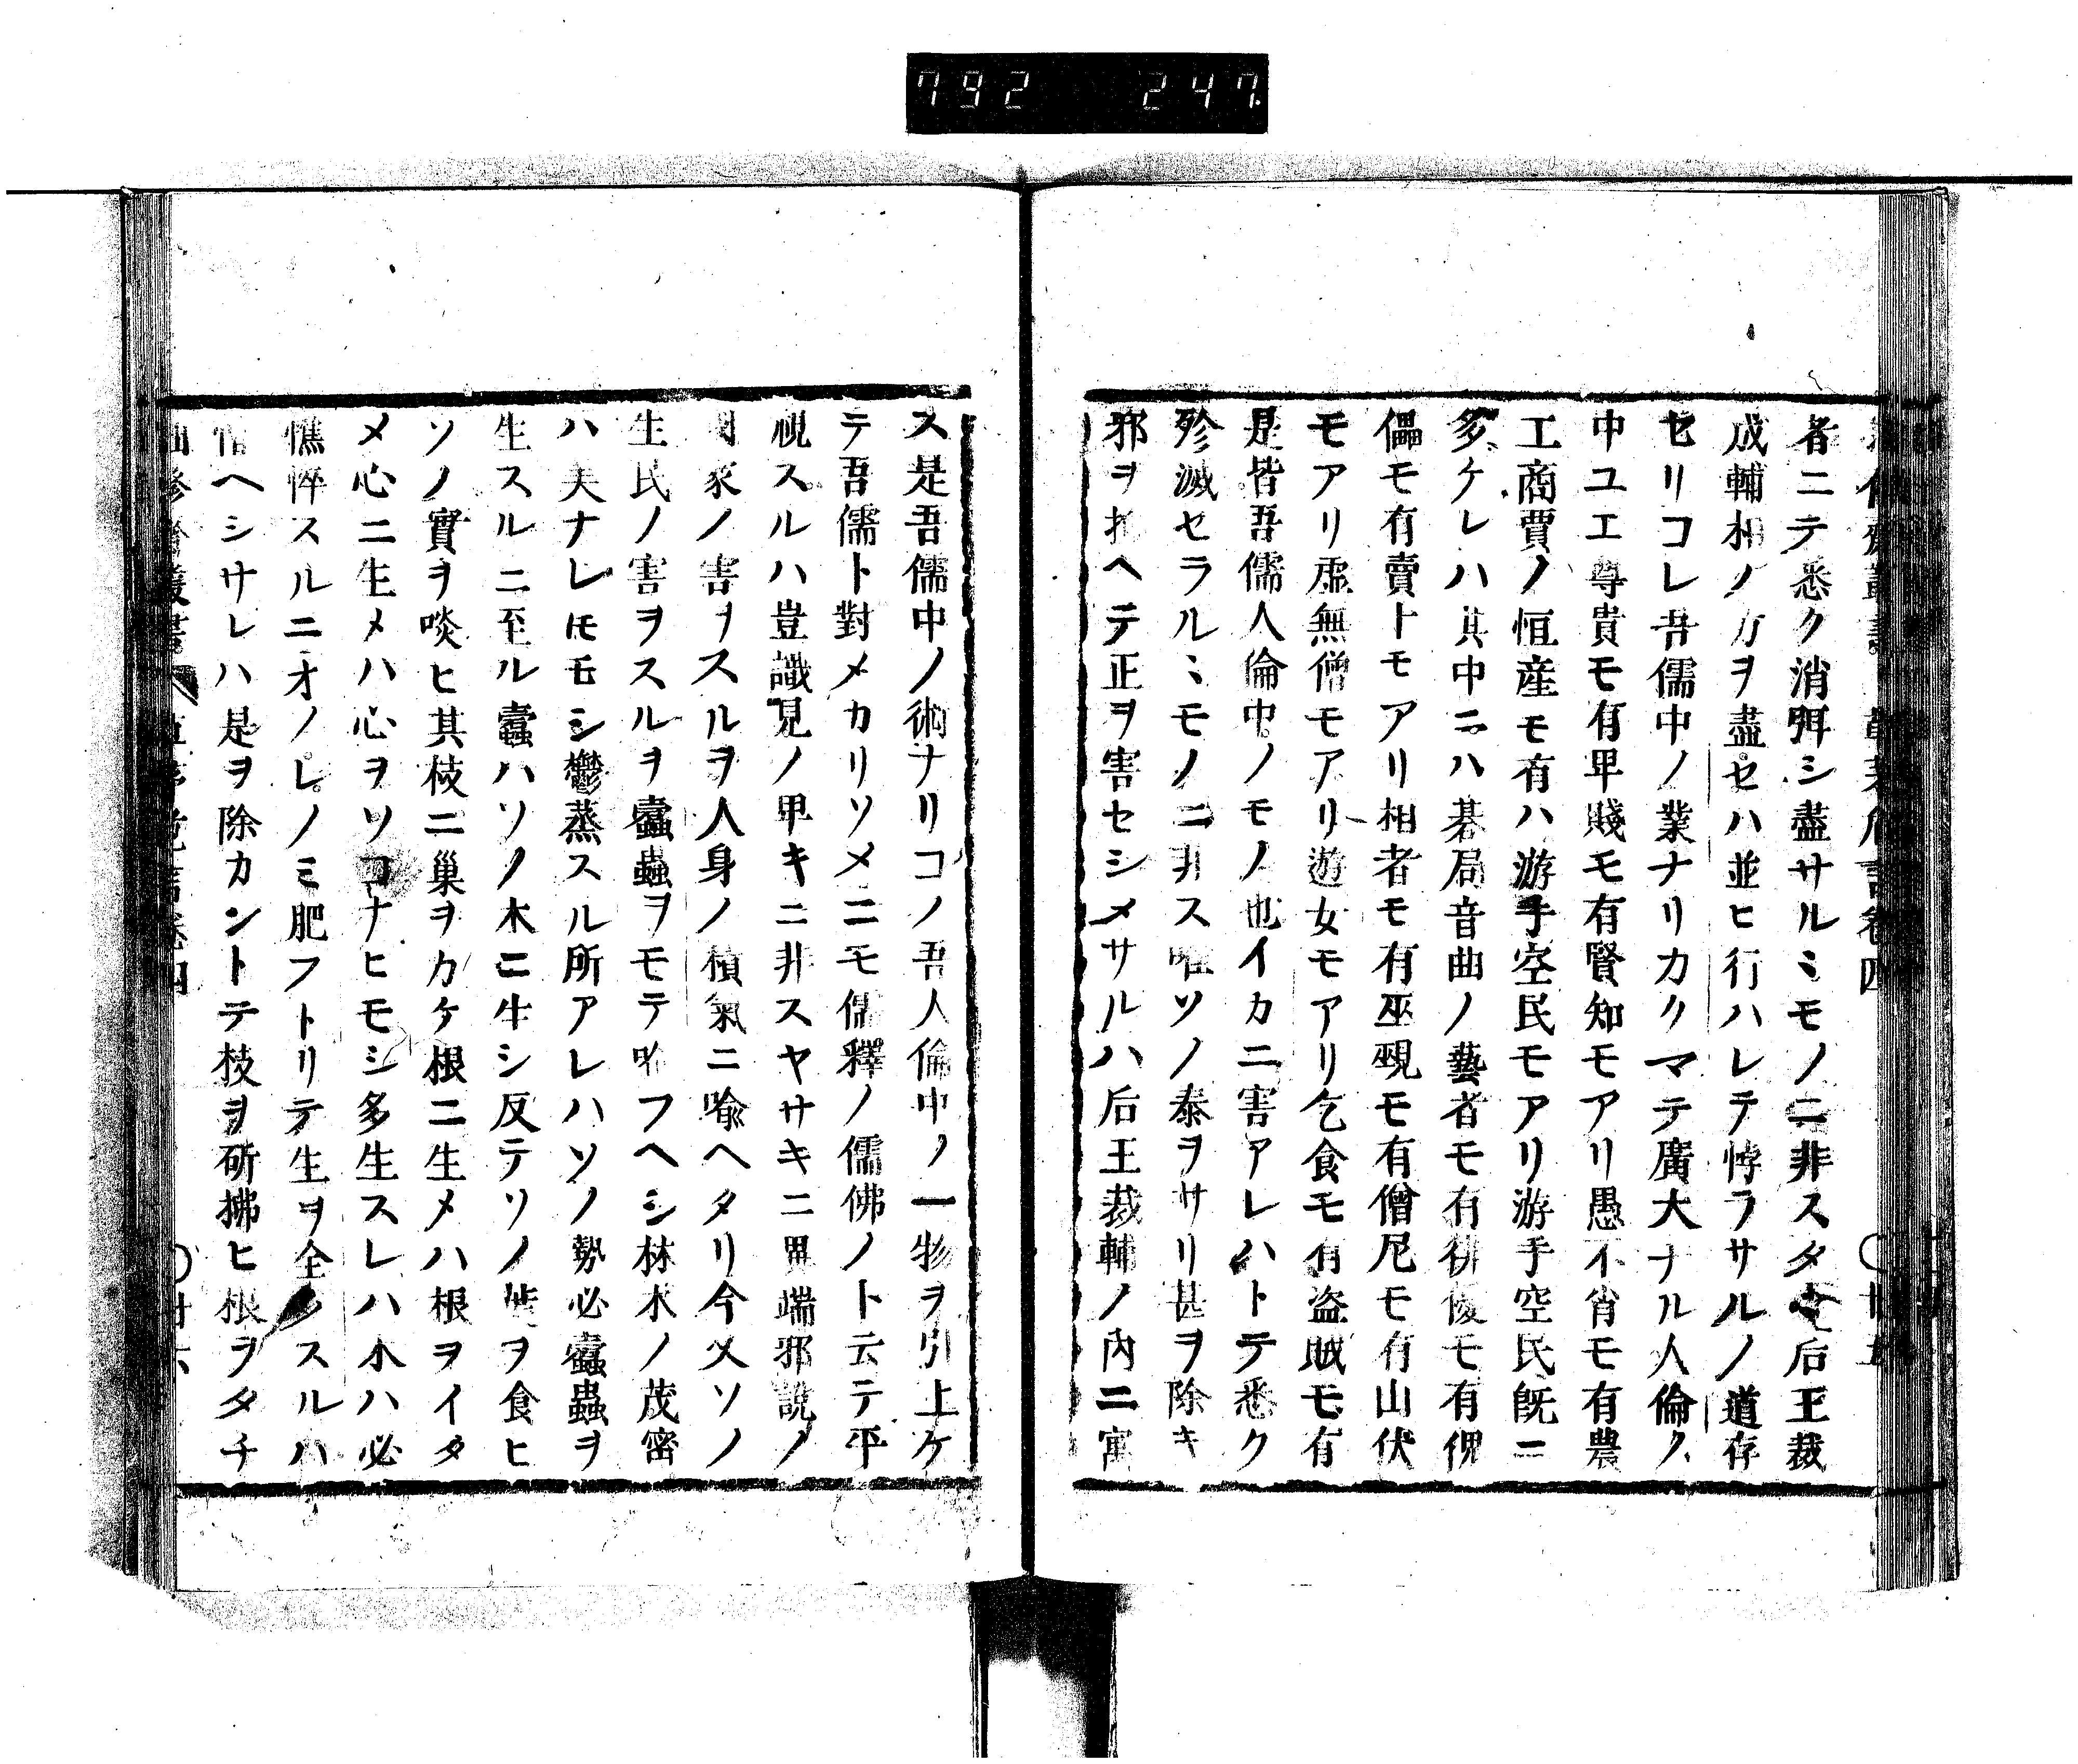 792 247
者ニテ悉ク消弭シ盡サルミモノニ非スタ后王裁
成輔相ノ力ヲ盡セハ並ヒ行ハレテ悖ラサルノ道存
セリコレ吾儒中ノ業ナリカクマテ廣大ナル人倫ク
中ユエ尊貴モ有卑賤モ有賢知モアリ愚不肖モ有農
工商賈ノ恒産モ有ハ游手空民モアリ游手空民既ニ
多ケレハ其中ニハ碁局音曲ノ藝者モ有俳優モ有傀
儡モ有賣卜モアリ相者モ有巫覡モ有僧尼モ有山伏
モアリ虚無僧モアリ遊女モアリ乞食モ有盗賊モ有
是皆吾儒人倫中ノモノ也イカニ害アレハトテ悉ク
殄滅セラルミモノニ非ス唯ソノ泰ヲサリ甚ヲ除キ
邪ヲヘテ正ヲ害セシメサルハ后王裁輔ノ内ニ寓
ス是吾儒中ノ術ナリコノ吾人倫中ノ一物ヲ引上ケ
テ吾儒ト對メカリソメニモ儒釋ノ儒佛ノト云テ平
視スルハ豈識見ノ甲キニ非スヤサキニ異端邪説ノ
國家ノ害ヲスルヲ人身ノ積氣ニ喩ヘタリ今又ソノ
生民ノ害ヲスルヲ蠹蟲ヲモテ喩フヘシ林木ノ茂密
ハ美ナレモモシ鬱蒸スル所アレハソノ勢必蠹蟲ヲ
生スルニ至ル蠹ハソノ木ニ生シ反テソノ葉ヲ食ヒ
ソノ實ヲ啖ヒ其枝ニ巣ヲカケ根ニ生メハ根ヲイタ
メ心ニ生メハ心ヲソコナヒモシ多生スレハ木ハ必
憔悴スルニオノレノミ肥フトリテ生ヲ全スルハ
惜ヘシサレハ是ヲ除カントテ枝ヲ斫拂ヒ根ヲタチ